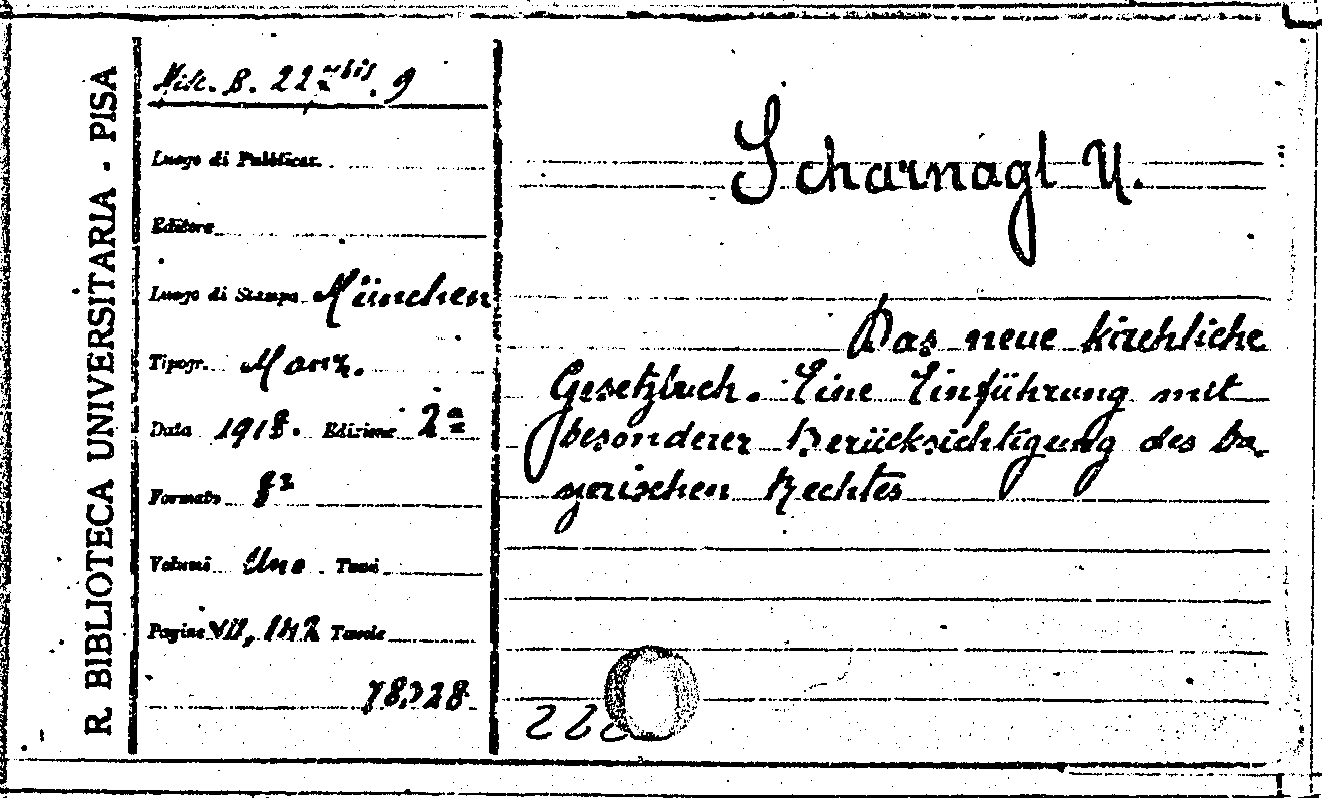 R. BIBLIOTECA UNIVERSITARIA - PISA
Mik. B. 22 bis. 9
Luogo di Pubblicaz.
Editore
Luogo di Stampa München
Tipogr. Manz.
Data 1918. Edizione 2ª
Formato 8º
Volumi Uno Tomi
Pagine VII, 142 Tavole
78328
Scharnagl A.
Das neue kirchliche
Gesetzbuch. Eine Einführung mit
besonderer Berücksichtigung des ba-
yerischen Rechtes
222